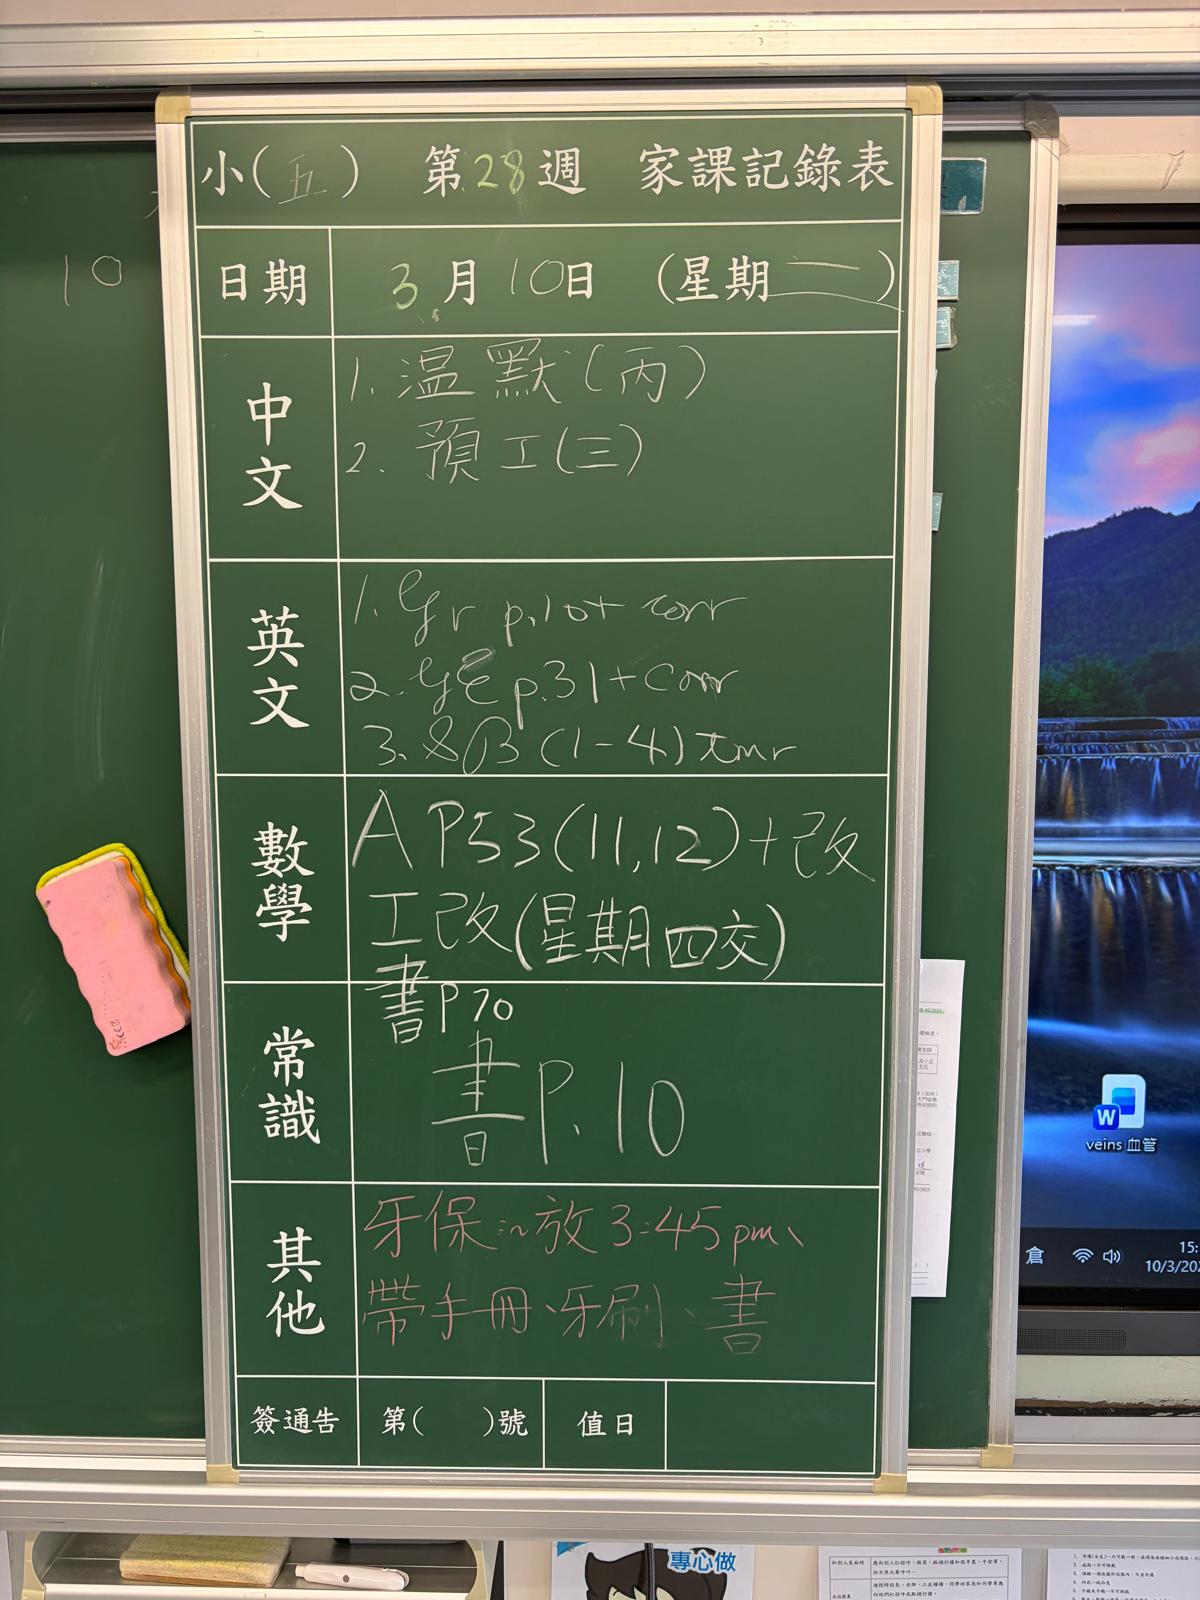 小(五) 第28週 家課記錄表
日期 3月10日 (星期二)
中文
1. 溫默(丙)
2. 預工(三)
英文
1. Gr p.10+ corr
2. GE p.31+Corr
3. (1-4) tmr
數學
A P53(11,12)+改
工改(星期四交)
書P70
常識
書P.10
其他
牙保 放3:45pm、
帶手冊、牙刷、書
簽通告 第( )號 值日
10
veins 血管
倉
15:
10/3/202
專心做